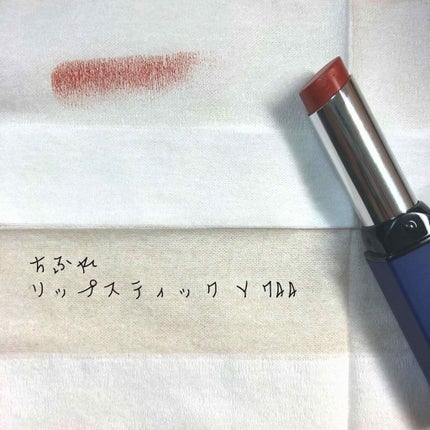 ちふれ
リップスティック Y 748